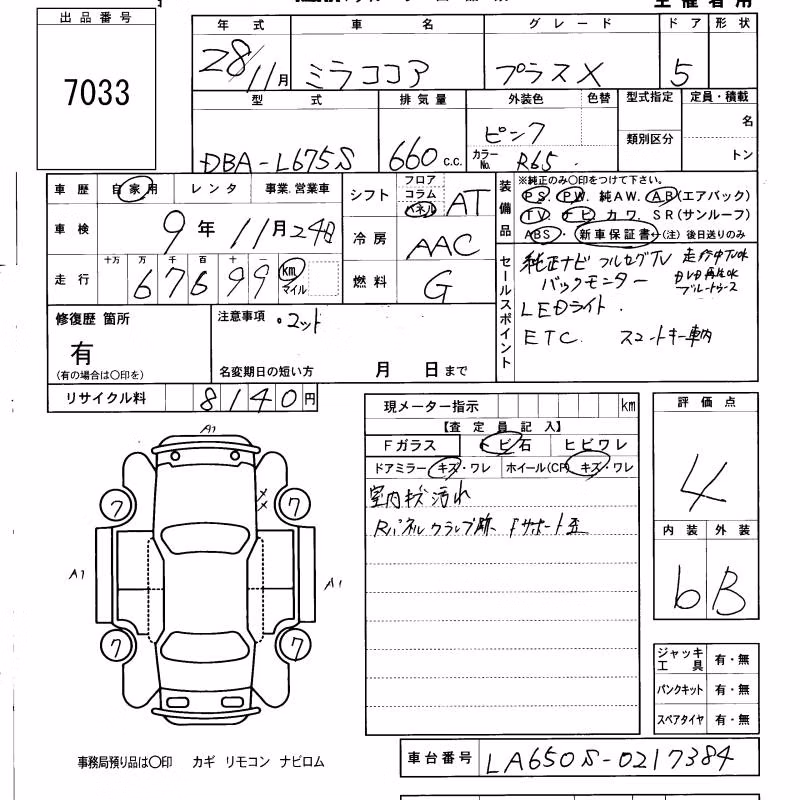 出品番号
7033
年式 車名 グレード ドア 形状
28/11月 ミラココア プラスX 5
型式 排気量 外装色 色替 型式指定 定員・積載
DBA-L675S 660 c.c. ピンク 類別区分 名
カラーNo. R65 トン
車歴 自家用 レンタ 事業.営業車
車検 9年11月24日
走行 十万 万 千 百 十 一
67699 km マイル
シフト フロア コラム パネル AT
冷房 AAC
燃料 G
装備品
※純正のみ〇印をつけて下さい。
PS. PW. 純AW. AB(エアバック)
TV ナビ カワ. SR(サンルーフ)
ABS・新車保証書←(注)後日送りのみ
セールスポイント
純正ナビ フルセグTV 走行中TVOK
バックモニター DVD再生OK
ブルートゥース
LEDライト.
ETC. スマートキー車内
修復歴 箇所
有
(有の場合は〇印を)
注意事項
名変期日の短い方 月 日まで
リサイクル料 8140円
現メーター指示 km
【査定員記入】
Fガラス トビ石 ヒビワレ
ドアミラー キズ・ワレ ホイール(CP) キズ・ワレ
室内キズ汚れ
Rパネルクランプ跡 Fサポート歪
評価点
4
内装 外装
b B
ジャッキ工具 有・無
パンクキット 有・無
スペアタイヤ 有・無
A1
7 7
A1 A1
7 7
事務局預り品は〇印 カギ リモコン ナビロム
車台番号 LA650S-0217384